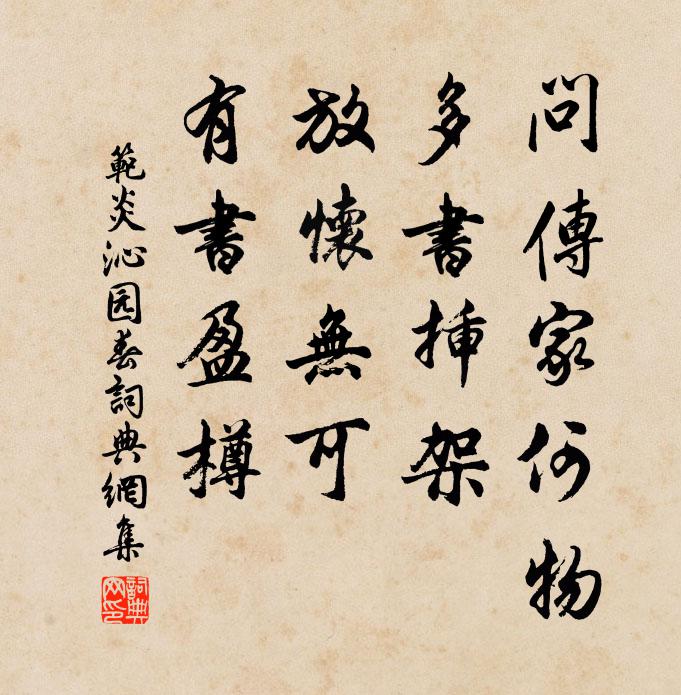 問傳家何物
多書插架
放懷無可
有書盈樽
範炎沁园春詞典網集
詞典網印